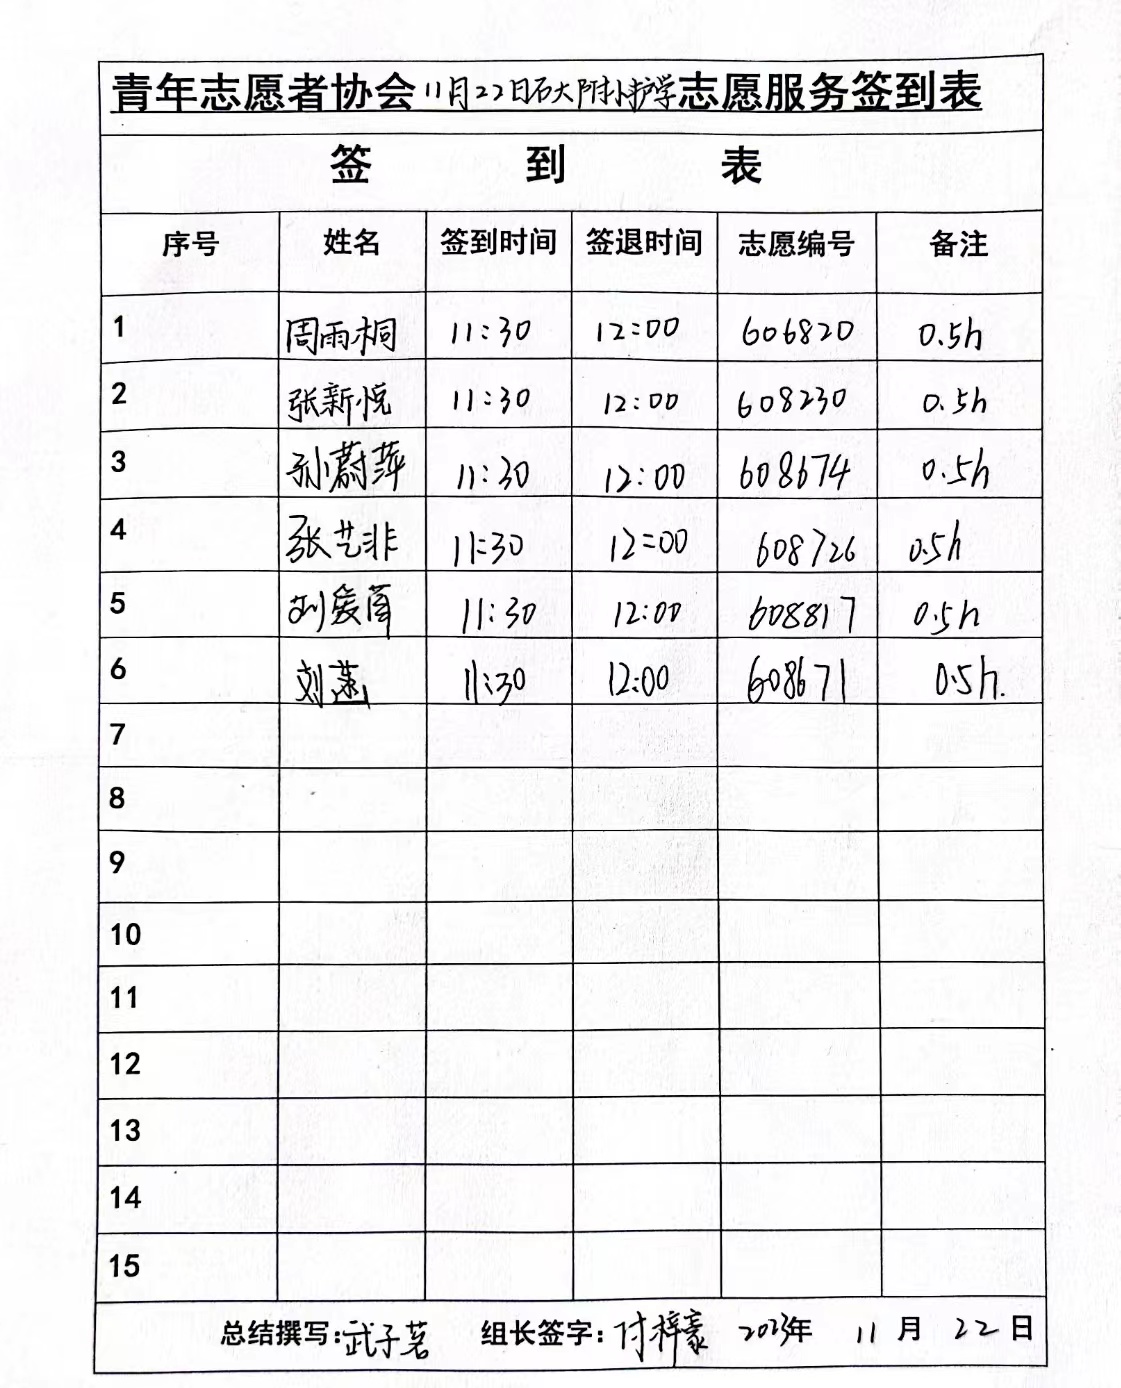 青年志愿者协会11月22日石大附小护学志愿服务签到表
签 到 表
序号 姓名 签到时间 签退时间 志愿编号 备注
1 周雨桐 11:30 12:00 606820 0.5h
2 张新悦 11:30 12:00 608230 0.5h
3 孙蔚萍 11:30 12:00 608674 0.5h
4 张艺非 11:30 12:00 608726 0.5h
5 刘爱 11:30 12:00 608817 0.5h
6 刘 11:30 12:00 608671 0.5h.
7
8
9
10
11
12
13
14
15
总结撰写:武子茗 组长签字:付梓豪 2023年 11月 22日